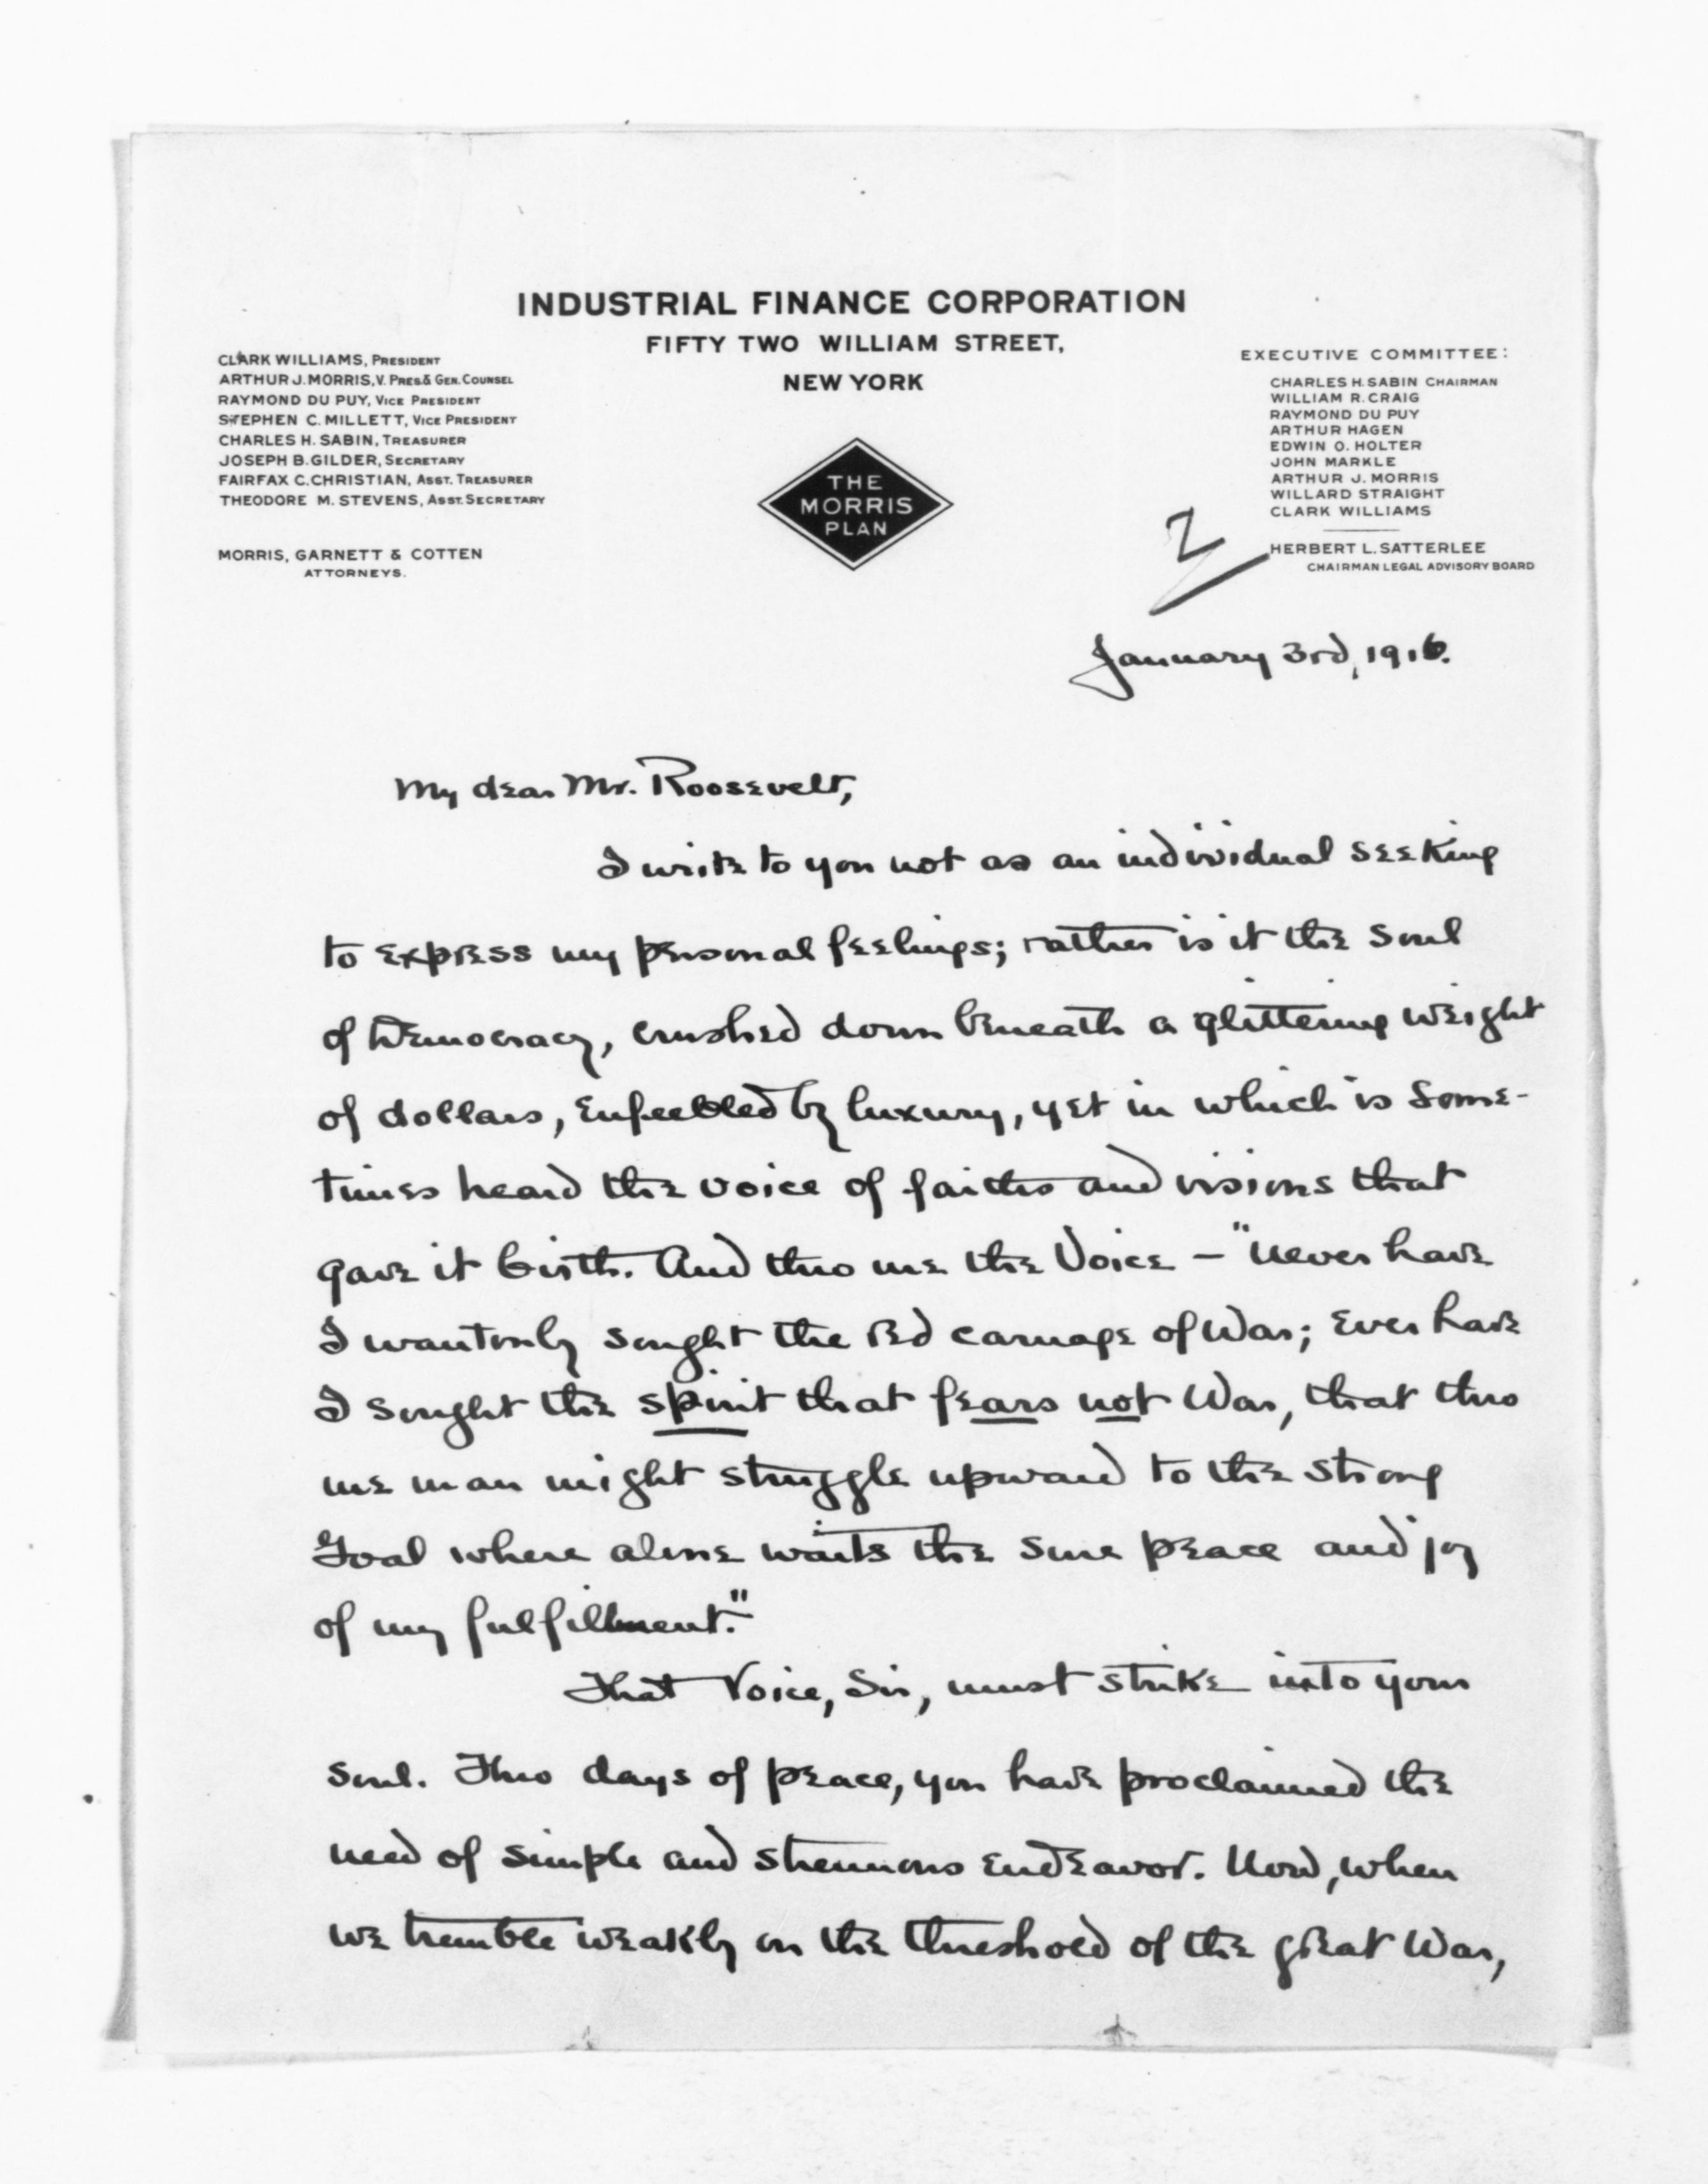 INDUSTRIAL FINANCE CORPORATION
FIFTY TWO WILLIAM STREET,
NEW YORK
CLARK WILLIAMS, PRESIDENT
ARTHUR J. MORRIS, V. PRES. & GEN. COUNSEL
RAYMOND DU PUY, VICE PRESIDENT
STEPHEN C. MILLETT, VICE PRESIDENT
CHARLES H. SABIN, TREASURER
JOSEPH B. GILDER, SECRETARY
FAIRFAX C. CHRISTIAN, ASST. TREASURER
THEODORE M. STEVENS, ASST. SECRETARY
MORRIS, GARNETT & COTTEN
ATTORNEYS.
THE
MORRIS
PLAN
EXECUTIVE COMMITTEE:
CHARLES H. SABIN CHAIRMAN
WILLIAM R. CRAIG
RAYMOND DU PUY
ARTHUR HAGEN
EDWIN O. HOLTER
JOHN MARKLE
ARTHUR J. MORRIS
WILLARD STRAIGHT
CLARK WILLIAMS
HERBERT L. SATTERLEE
CHAIRMAN LEGAL ADVISORY BOARD
January 3rd, 1916.
My dear Mr. Roosevelt,
I write to you not as an individual seeking
to express my personal feelings; rather is it the soul
of Democracy, crushed down beneath a glittering weight
of dollars, enfeebled by luxury, yet in which is some-
times heard the voice of faiths and visions that
gave it birth. And thro me the Voice - "Never have
I wantonly sought the red carnage of War; ever have
I sought the spirit that fears not War, that thro
me man might struggle upward to the strong
Goal where alone waits the sure peace and joy
of my fulfillment."
That Voice, Sir, must strike into your
soul. Thro days of peace, you have proclaimed the
need of simple and strenuous endeavor. Now, when
we tremble weakly on the threshold of the great War,